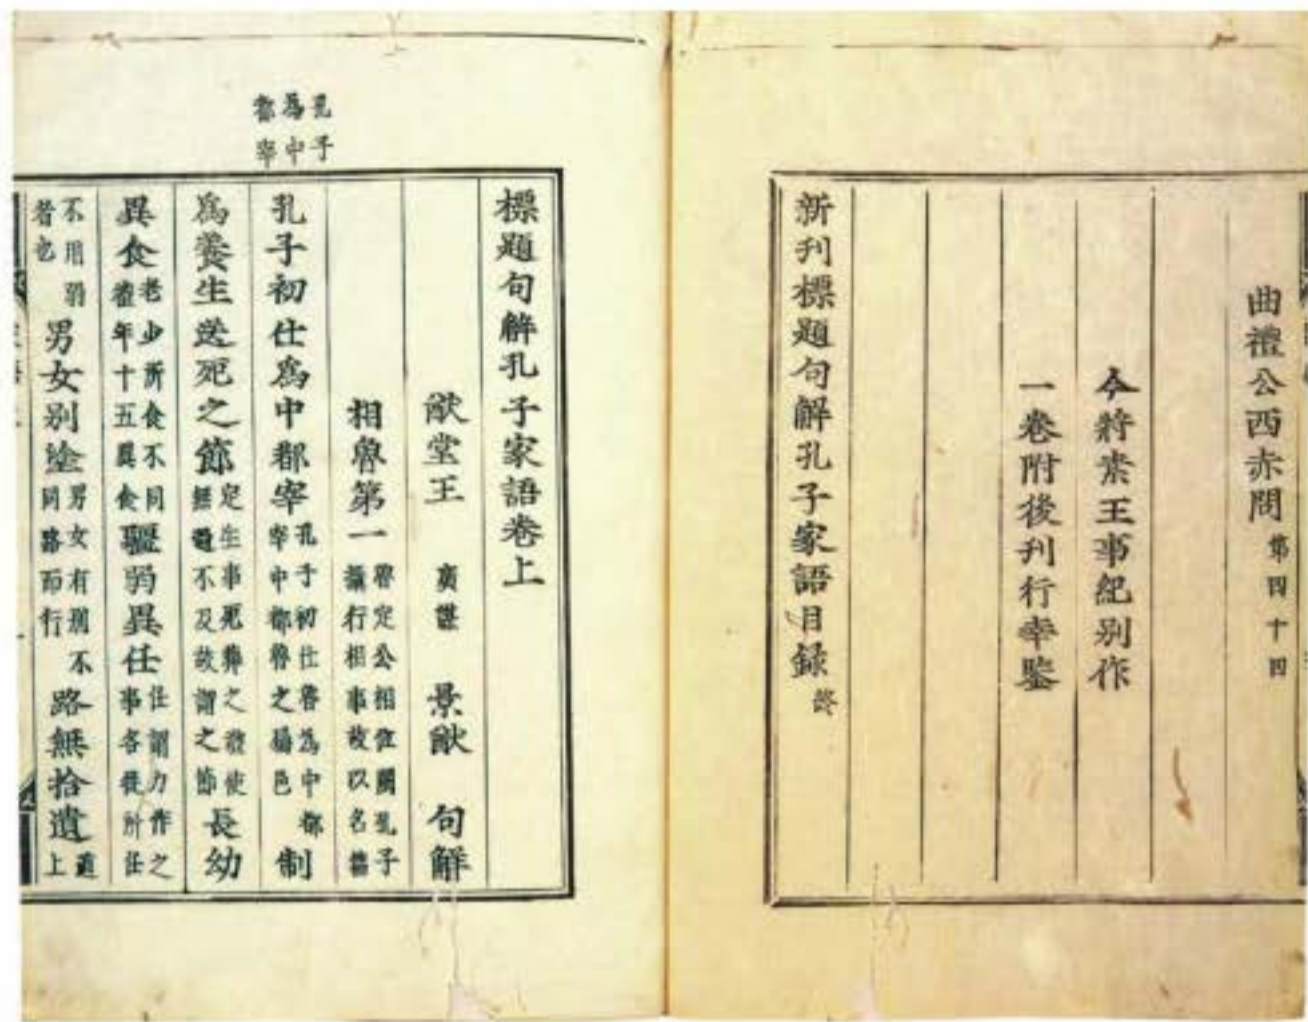 曲禮公西赤問第四十四
今將素王事紀別作
一卷附後刊行幸鑒
新刊標題句解孔子家語目錄終
孔子
為中
都宰
標題句解孔子家語卷上
猷堂王廣謀景猷句解
相魯第一魯定公相位闕孔子攝行相事故以名篇
孔子初仕爲中都宰孔子初仕魯為中都宰中都魯之屬邑制
爲養生送死之節定生事死葬之禮使無過不及故謂之節長幼
異食老少所食不同禮年十五異食彊弱異任任謂力作之事各從所任
不用弱者也男女別塗男女有別不同路而行路無拾遺道上